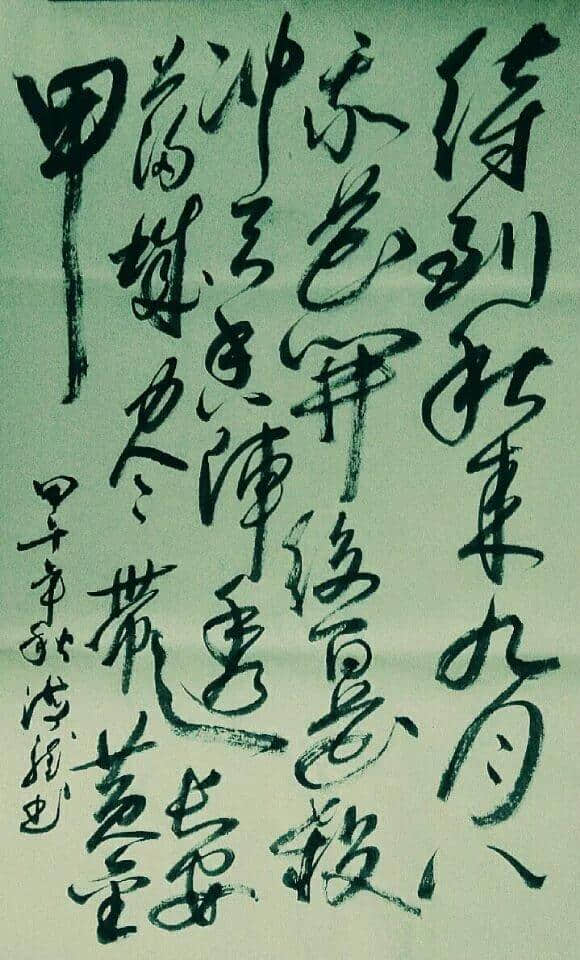 待到秋来九月八
我花開後百花殺
冲天香陣透長安
满城尽帶黄金
甲
甲午年秋书